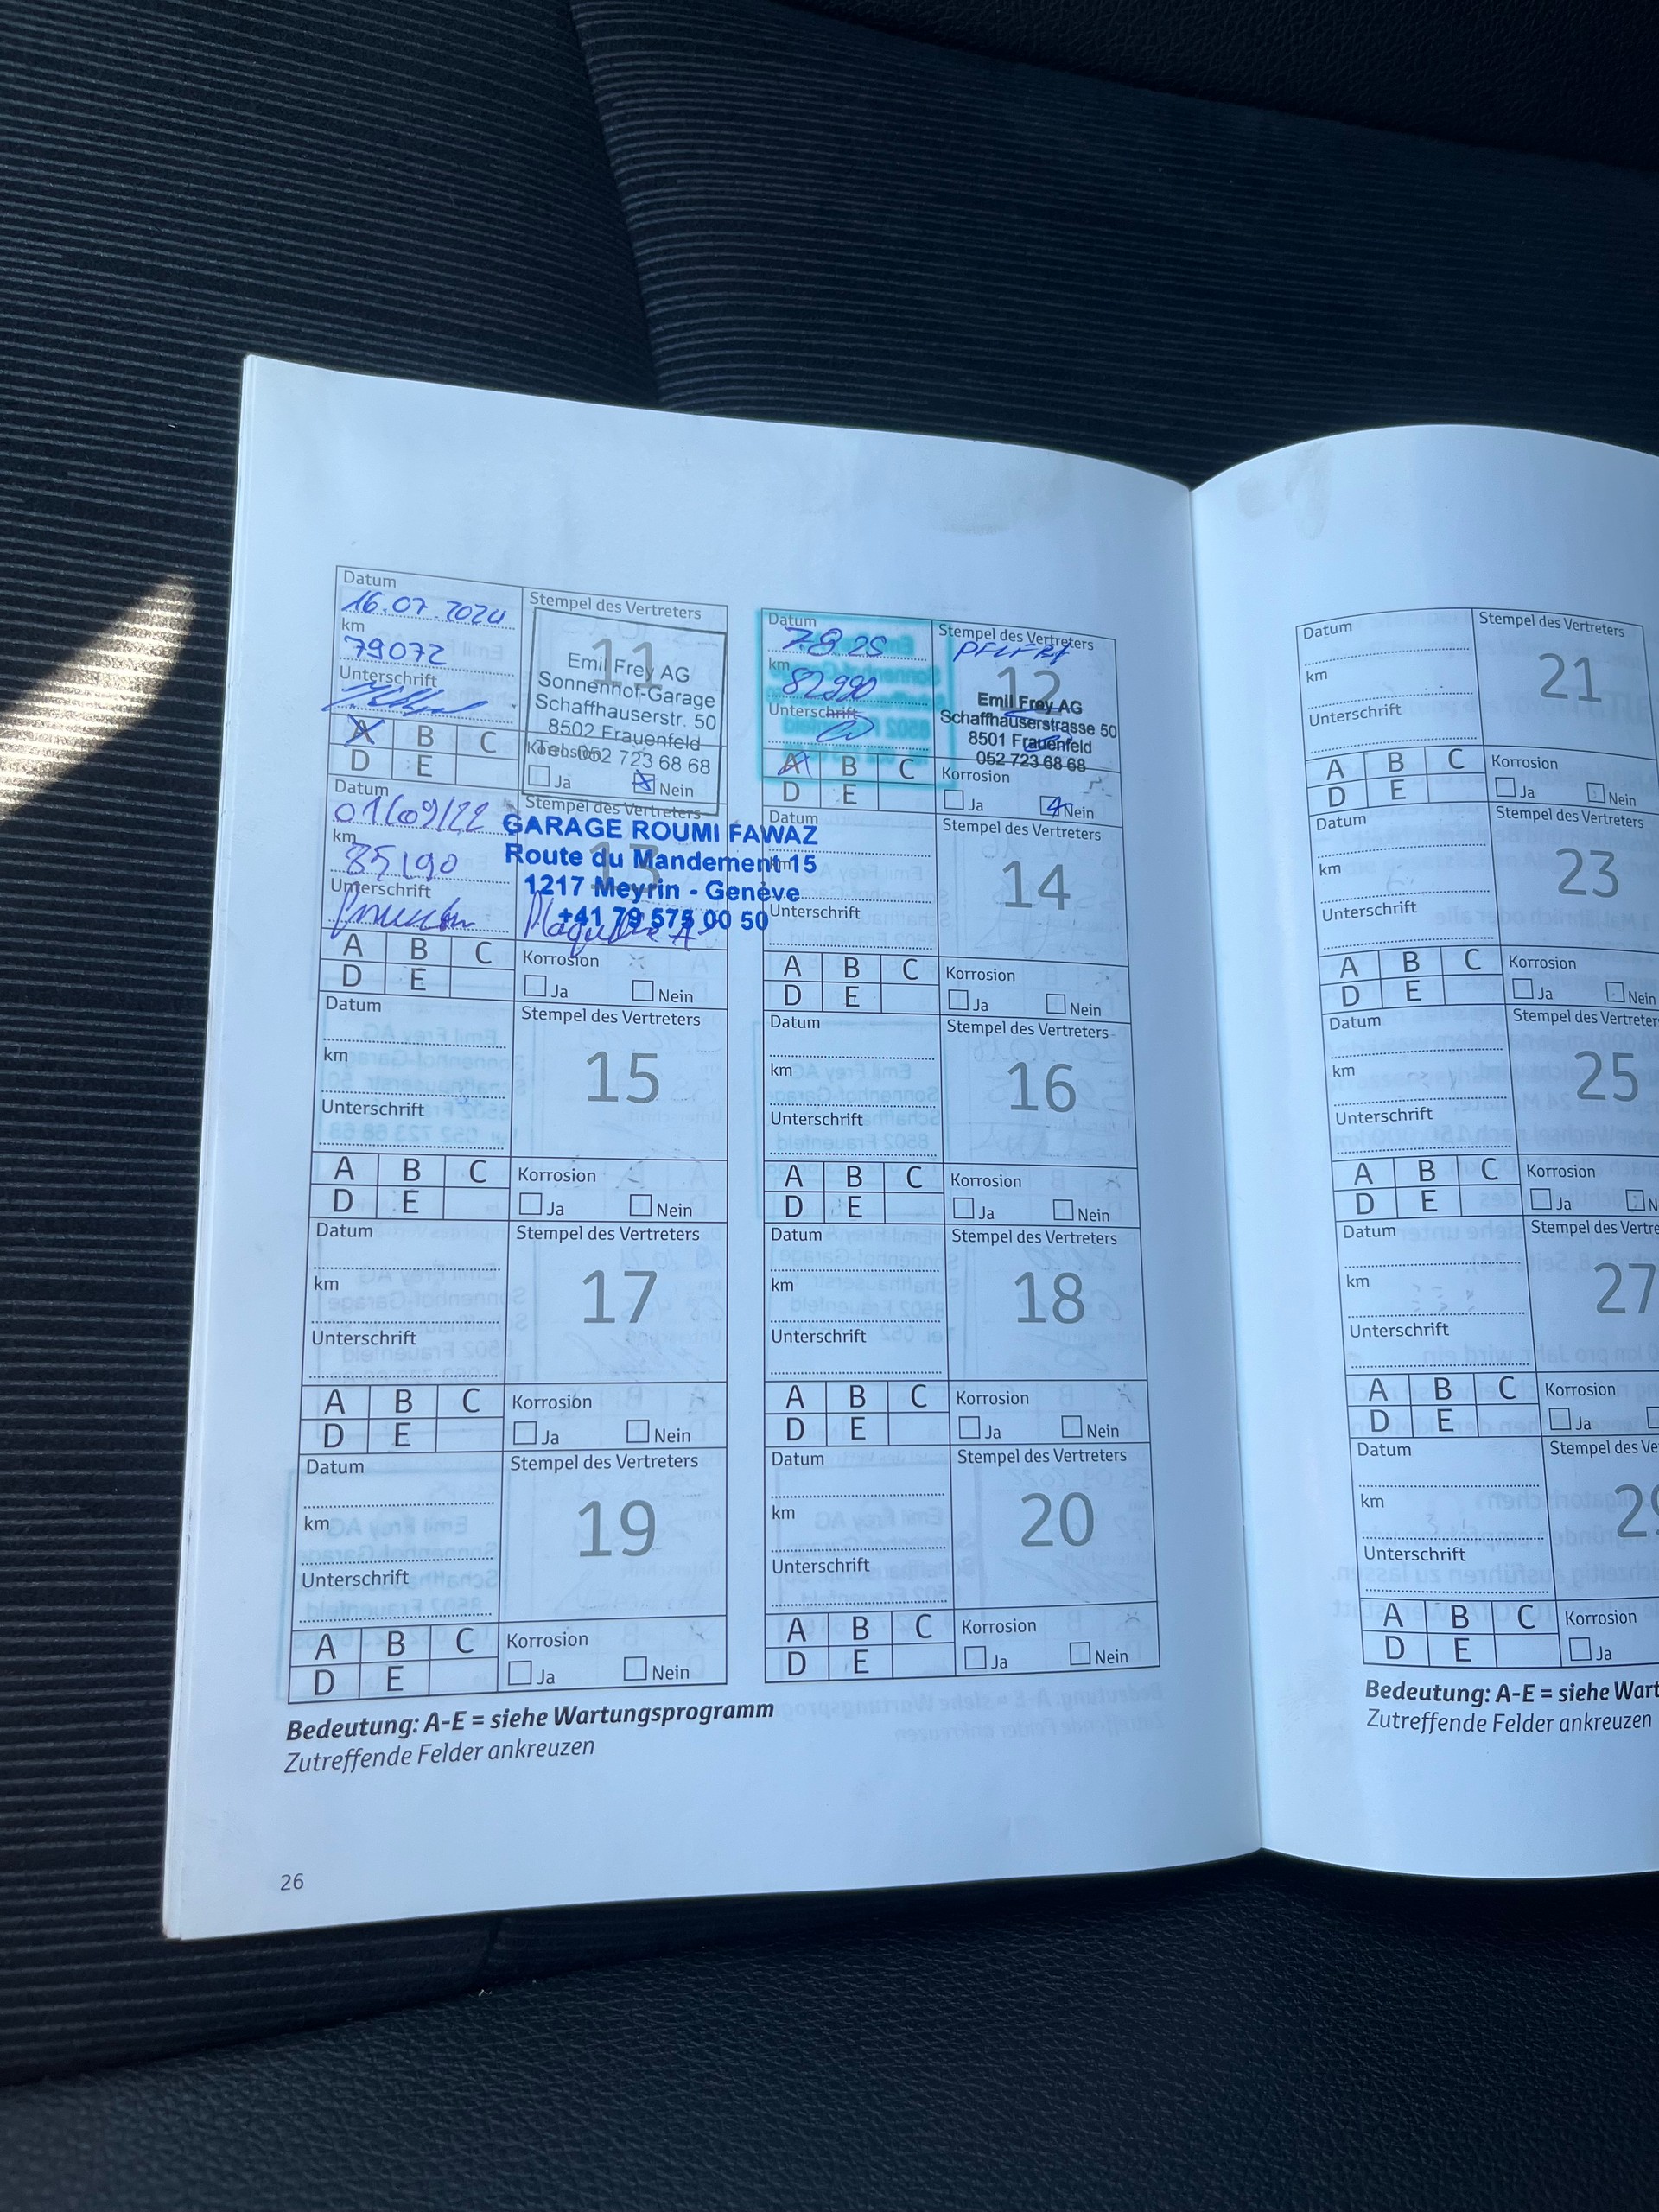 Datum
16.07.2024
km
79072
Unterschrift
Stempel des Vertreters
11
Emil Frey AG
Sonnenhof-Garage
Schaffhauserstr. 50
8502 Frauenfeld
Tel. 052 723 68 68
A B C
D E
Korrosion
Ja Nein
Datum
7.8.25
km
82990
Unterschrift
Stempel des Vertreters
12
Emil Frey AG
Schaffhauserstrasse 50
8501 Frauenfeld
052 723 68 68
A B C
D E
Korrosion
Ja Nein
Datum
01/09/22
km
85190
Unterschrift
Stempel des Vertreters
13
GARAGE ROUMI FAWAZ
Route du Mandement 15
1217 Meyrin - Genève
+41 79 575 00 50
A B C
D E
Korrosion
Ja Nein
Datum
km
Unterschrift
Stempel des Vertreters
14
A B C
D E
Korrosion
Ja Nein
Datum
km
Unterschrift
Stempel des Vertreters
15
A B C
D E
Korrosion
Ja Nein
Datum
km
Unterschrift
Stempel des Vertreters
16
A B C
D E
Korrosion
Ja Nein
Datum
km
Unterschrift
Stempel des Vertreters
17
A B C
D E
Korrosion
Ja Nein
Datum
km
Unterschrift
Stempel des Vertreters
18
A B C
D E
Korrosion
Ja Nein
Datum
km
Unterschrift
Stempel des Vertreters
19
A B C
D E
Korrosion
Ja Nein
Datum
km
Unterschrift
Stempel des Vertreters
20
A B C
D E
Korrosion
Ja Nein
Bedeutung: A-E = siehe Wartungsprogramm
Zutreffende Felder ankreuzen
26
Datum
km
Unterschrift
Stempel des Vertreters
21
A B C
D E
Korrosion
Ja Nein
Datum
km
Unterschrift
Stempel des Vertreters
23
A B C
D E
Korrosion
Ja Nein
Datum
km
Unterschrift
Stempel des Vertreter
25
A B C
D E
Korrosion
Ja N
Datum
km
Unterschrift
Stempel des Vertre
27
A B C
D E
Korrosion
Ja
Datum
km
Unterschrift
Stempel des Ve
A B C
D E
Korrosion
Ja
Bedeutung: A-E = siehe Wart
Zutreffende Felder ankreuzen